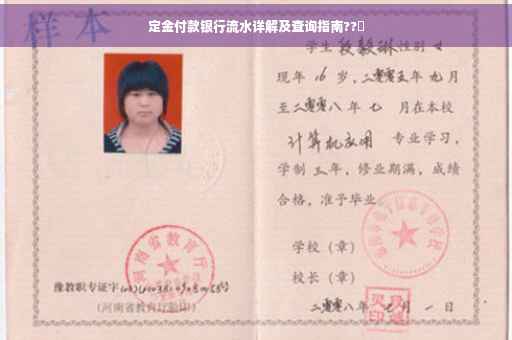 定金付款银行流水详解及查询指南??
样本
学生段毅琳性别女
现年16岁,二零零五年九月
至二零零八年七月在本校
计算机应用 专业学习,
学制三年,修业期满,成绩
合格,准予毕业
学校(章)
校长(章)
二零零八年七月一日
河南省教育厅
豫教职专证字
(河南省教育厅验印)